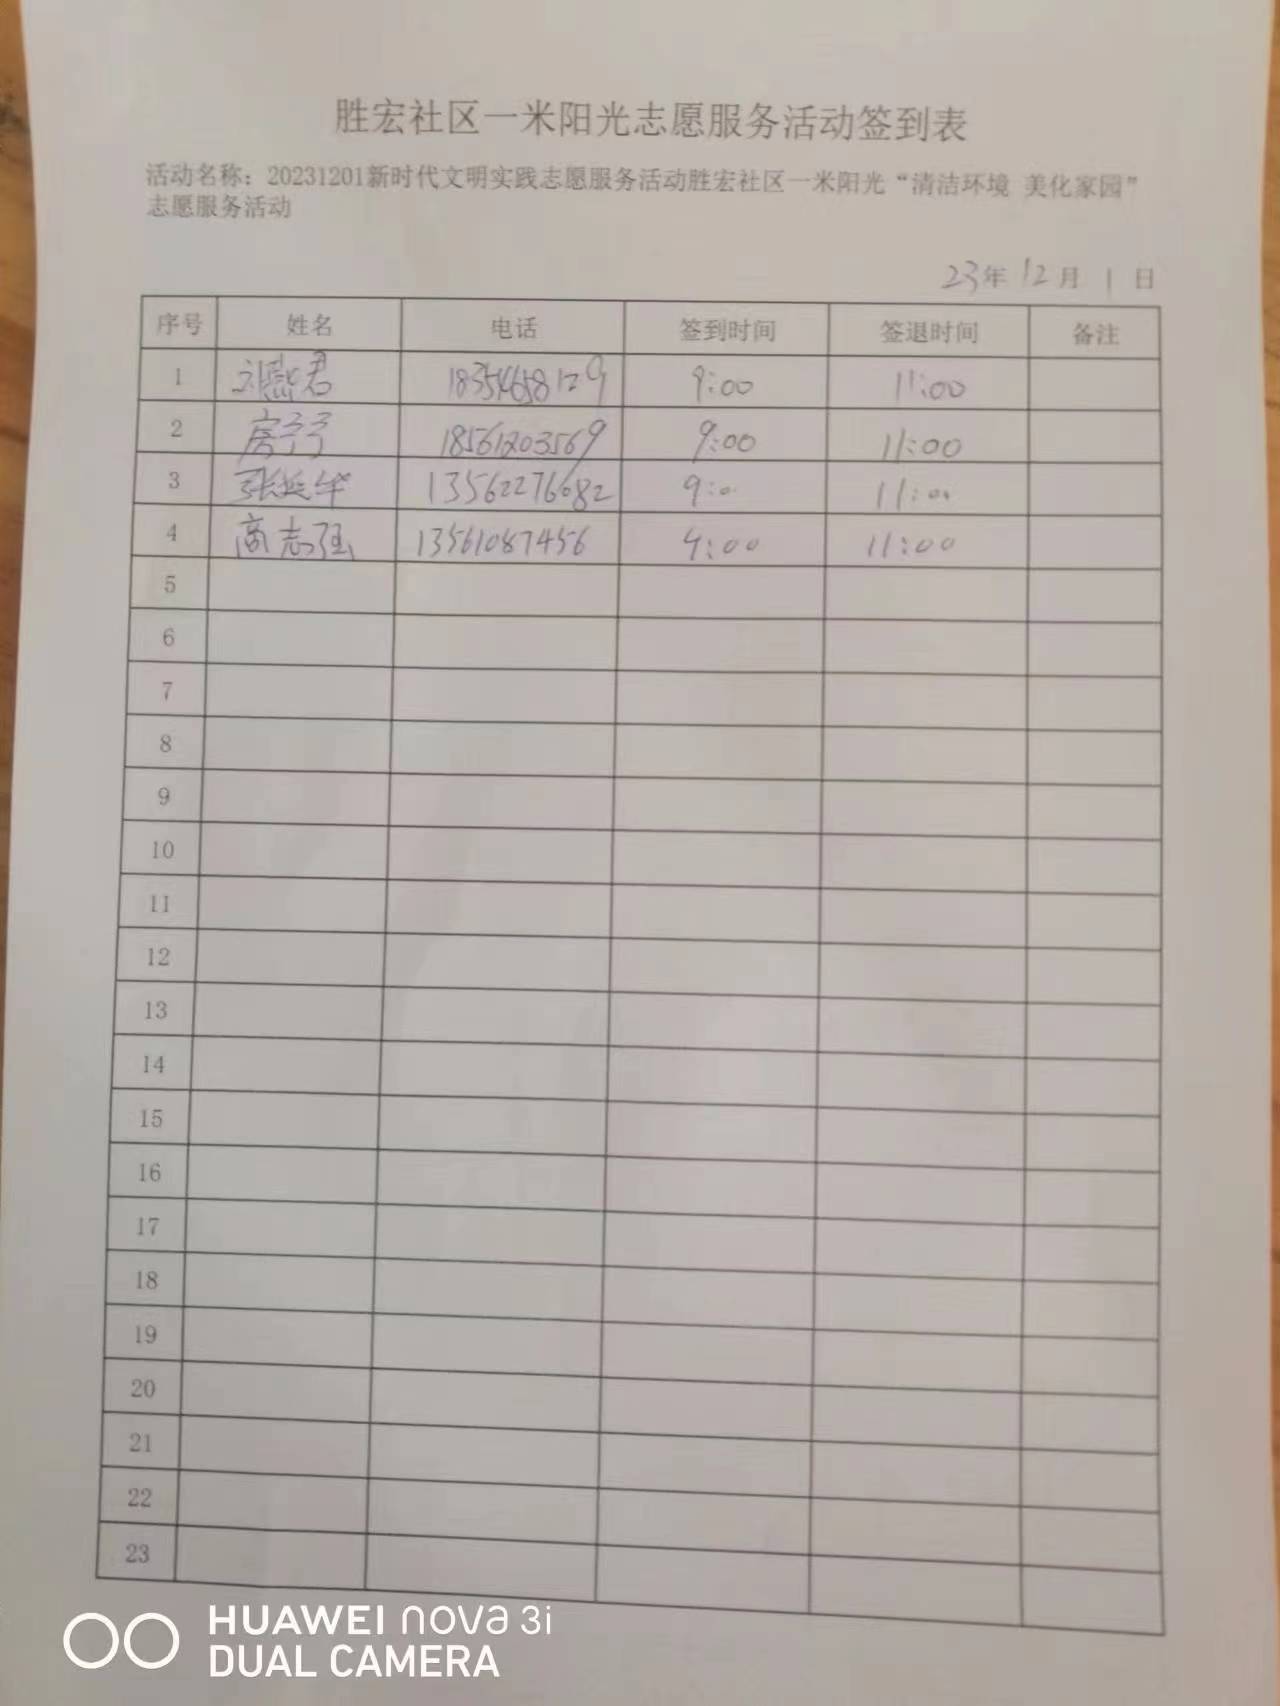 胜宏社区一米阳光志愿服务活动签到表
活动名称：20231201新时代文明实践志愿服务活动胜宏社区一米阳光“清洁环境 美化家园”
志愿服务活动
23年 12月 1 日
序号 姓名 电话 签到时间 签退时间 备注
1 18354658129 9:00 11:00
2 房子子 18561203569 9:00 11:00
3 张延华 13562276682 9:0 11:00
4 商志强 13561087456 9:00 11:00
5
6
7
8
9
10
11
12
13
14
15
16
17
18
19
20
21
22
23
HUAWEI nova 3i
DUAL CAMERA